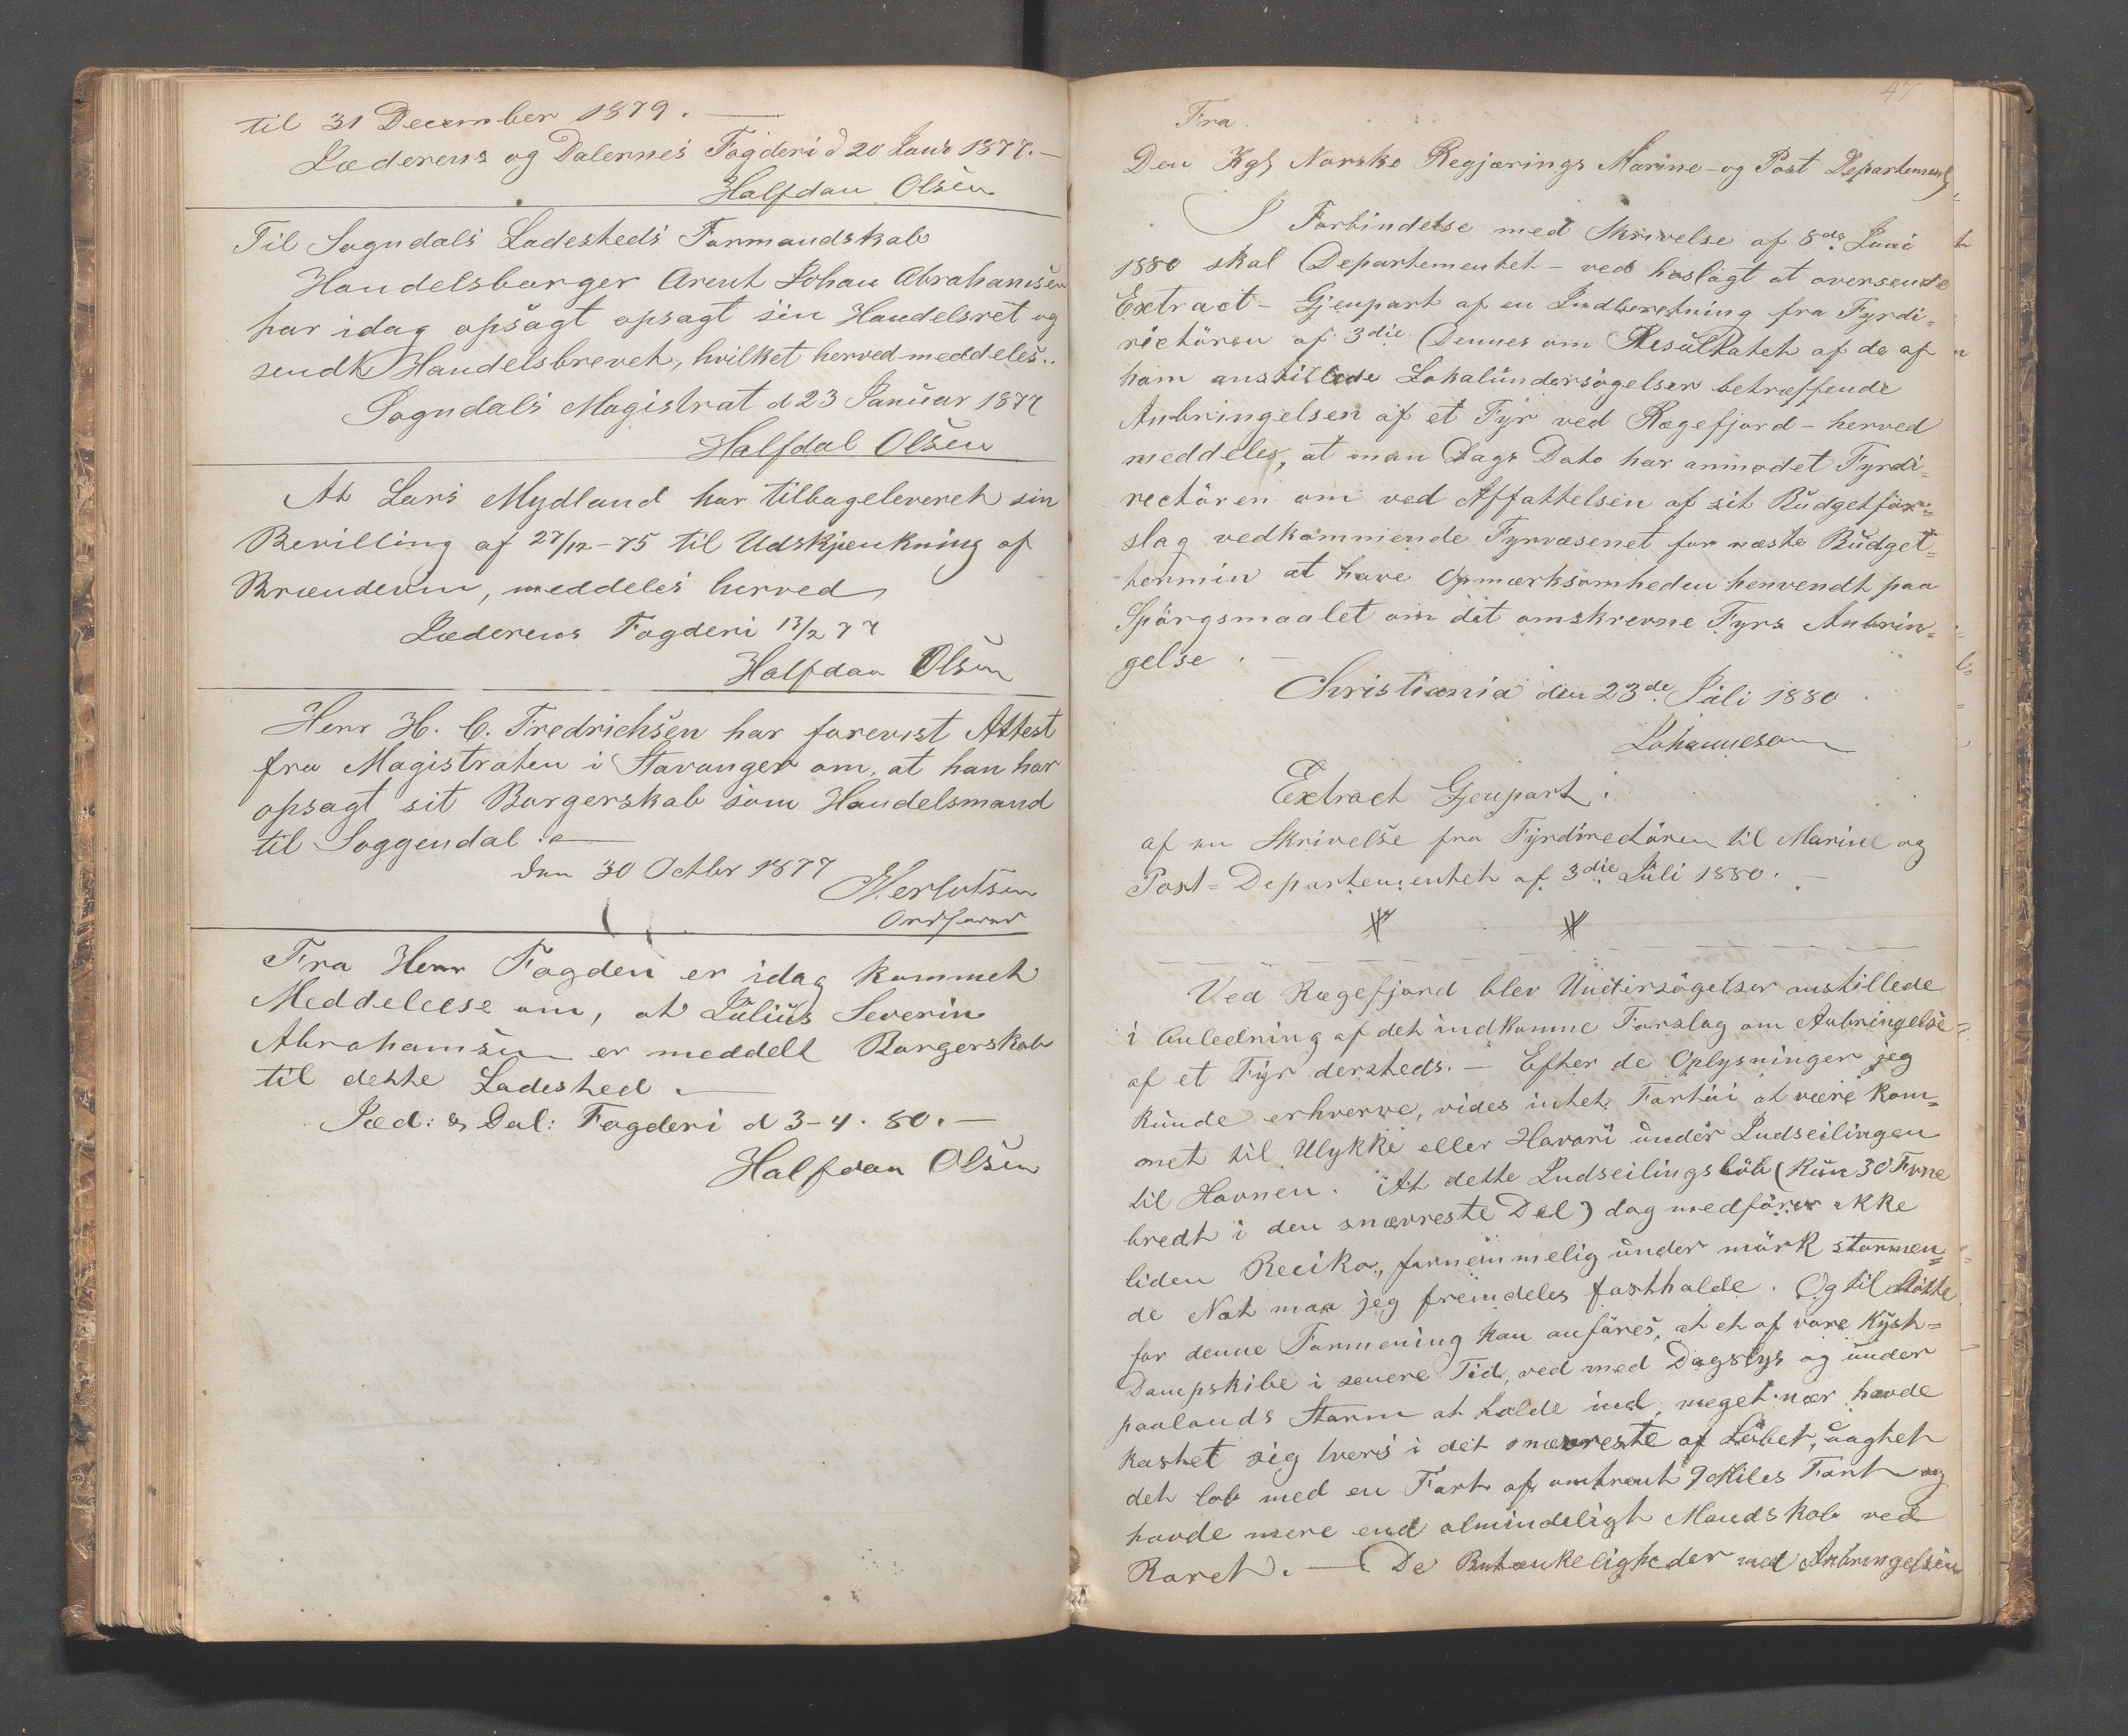 til 31 December 1879.
Jæderens og Dalernes Fogderi d 20 Janr 1877.
Halfdan Olsen
Til Sogndals Ladesteds Formandskab
Handelsborger Arent Johan Abrahamsen
har idag opsagt opsagt sin Handelsret og
sendt Handelsbrevet, hvilket herved meddeles.
Sogndals Magistrat d 23 Januar 1877
Halfdal Olsen
At Lars Mydland har tilbageleveret sin
Bevilling af 27/12-75 til Udskjenkning af
Brændevin, meddeles herved
Jæderens Fogderi 13/2 77
Halfdan Olsen
Herr H. C. Fredrichsen har forevist Attest
fra Magistraten i Stavanger om, at han har
opsagt sit Borgerskab som Handelsmand
til Soggendal.
den 30 Octbr 1877
Ordfører
Fra Herr Fogden er idag kommet
Meddelelse om, at Julius Severin
Abrahamsen er meddelt Borgerskab
til dette Ladested.
Jæd: & Dal: Fogderi d 3-4. 80.
Halfdan Olsen
47
Fra
Den Kgl Norske Regjærings Marine- og Post Departement
I Forbindelse med Skrivelse af 8de Juni
1880 skal Departementet - ved hoslagt at oversende
Extract-Gjenpart af en Indberetning fra Fyrdi-
rectören af 3die Dennes om Resultatet af de af
ham anstillede Lokalundersögelser betræffende
Anbringelsen af et Fyr ved Rægefjord - herved
meddeles, at man Dags Dato har anmodet Fyrdi-
rectören om ved Affattelsen af sit Budgetfor-
slag vedkommende Fyrvæsenet for næste Budget-
termin at have Opmærksomheden henvendt paa
Spörgsmaalet om det omskrevne Fyrs Anbrin-
gelse.
Christiania den 23de Juli 1880
Johannesen
Extract Gjenpart.
af en Skrivelse fra Fyrdirectören til Marine og
Post-Departementet af 3die Juli 1880.
Ved Rægefjord blev Undersögelser anstillede
i Anledning af det indkomne Forslag om Anbringelse
af et Fyr dersteds. - Efter de Oplysninger jeg
kunde erhverve, vides intet Fartöi at være kom-
met til Ulykke eller Havari under Indseilingen
til Havnen. At dette Indseilingslöb (kun 30 Favne
bredt i den snævreste Del) dog medförer ikke
liden Reciko, fornemmelig under mörk stormen-
de Nat maa jeg fremdeles fastholde. Og til Stötte
for denne Formening kan anföres, at et af vore Kyst-
Dampskibe i senere Tid, ved med Dagslys og under
paalands Storm at holde ind, meget nær havde
kastet sig tvers i det snævreste af Löbet, uagtet
det löb med en Fart af omtrent 9 Miles Fart og
havde mere end almindeligt Mandskab ved
Roret. - De Betænkeligheder med Anbringelsen